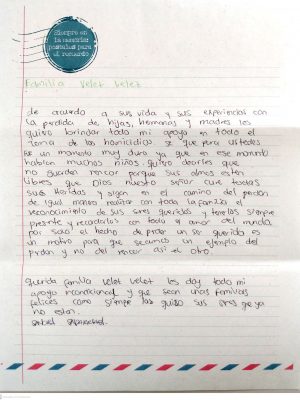 Siempre en
la memoria:
postales para
el recuerdo
Familia Velet Velet
de acuerdo a sus vida y sus experiencias con
la perdida de hijas, hermanas y madres les
quiero brindar todo mi apoyo en todo el
tema de los homicidios se que para ustedes
fue un momento muy duro ya que en ese momento
habían muchos niños quiero decirles que
no guarden rencor porque sus almas esten
libres que Dios nuestro señor cure todas
sus heridas y sigan en el camino del perdón
de igual manera realizar con toda la familia el
reconocimiento de sus seres queridos y tenerlos siempre
presente y recordarlos con todo el amor del mundo
por solo el hecho de perder un ser querido es
un motivo para que seamos un ejemplo del
perdón y no del rencor asi el otro.
Querida familia velet velet les doy todo mi
apoyo incondicional y que sean unas familias
felices como siempre las quiso sus seres que ya
no estan.